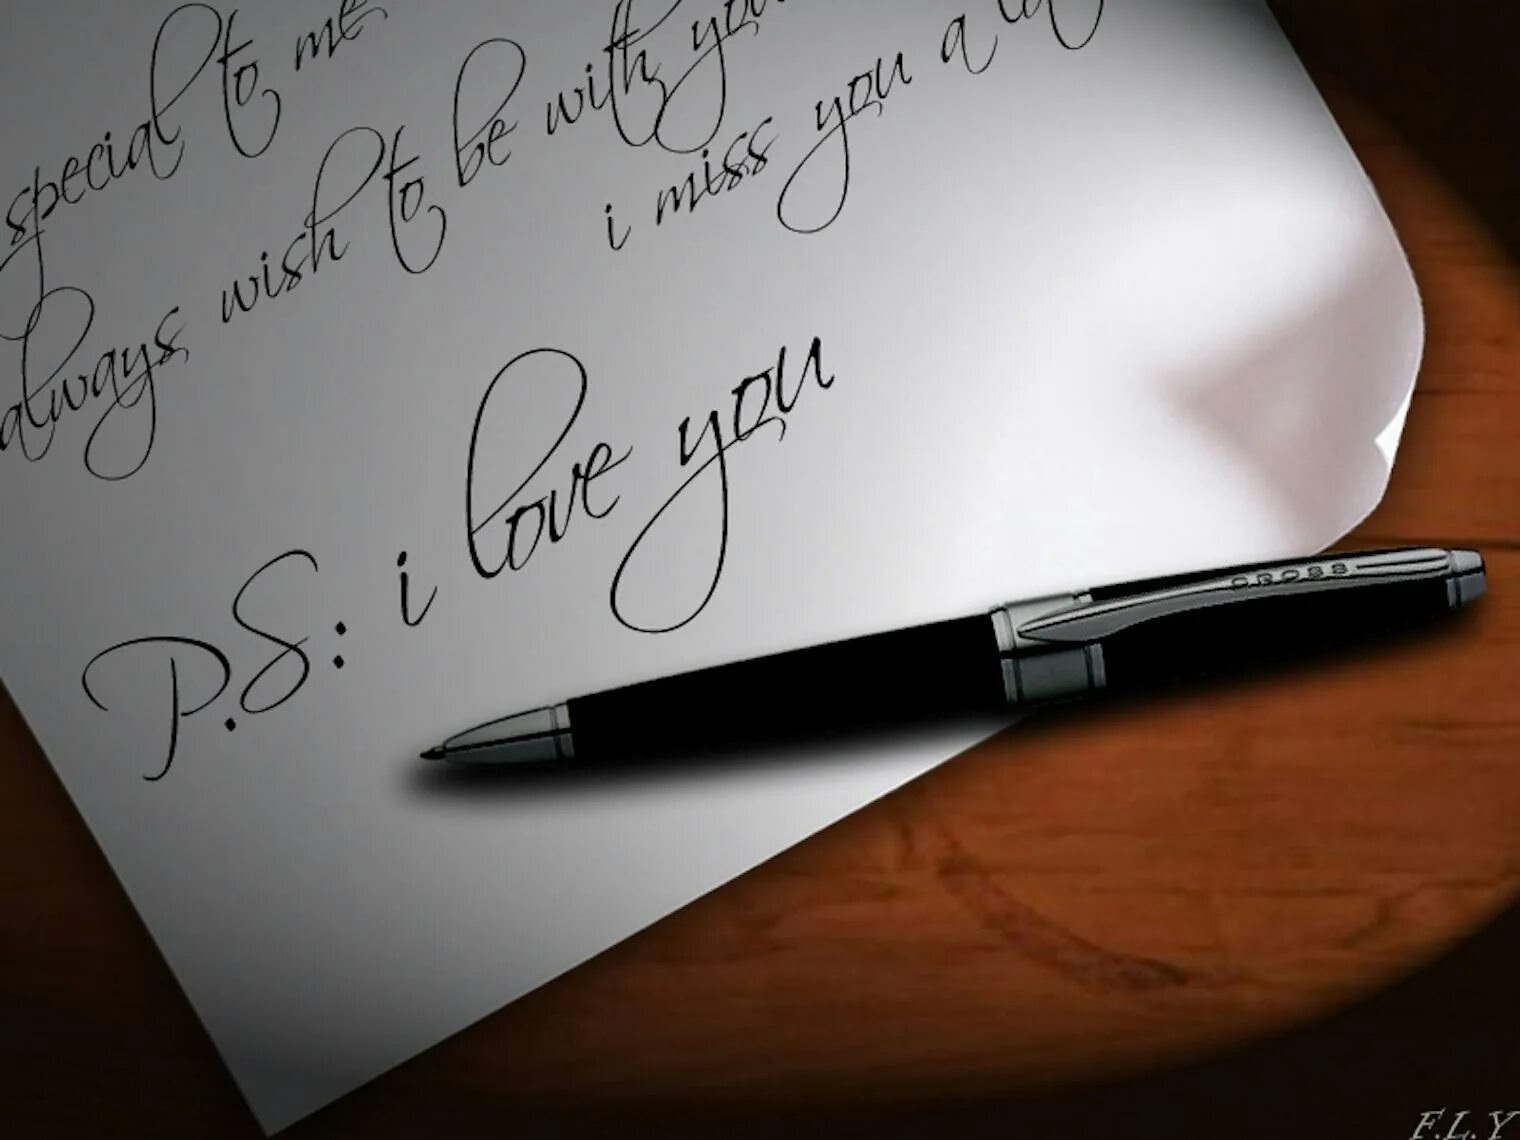 special to me
always wish to be with you
i miss you a lo
P.S: i love you
CROSS
F.L.Y